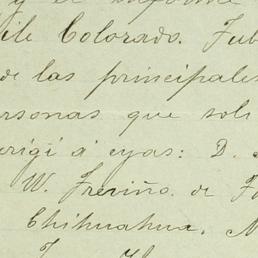 y el informe
ile Colorado. Jub
de las principales
ersonas que soli
irigí á eyas: D.
W. Treviño. de Fo
Chihuahua, M